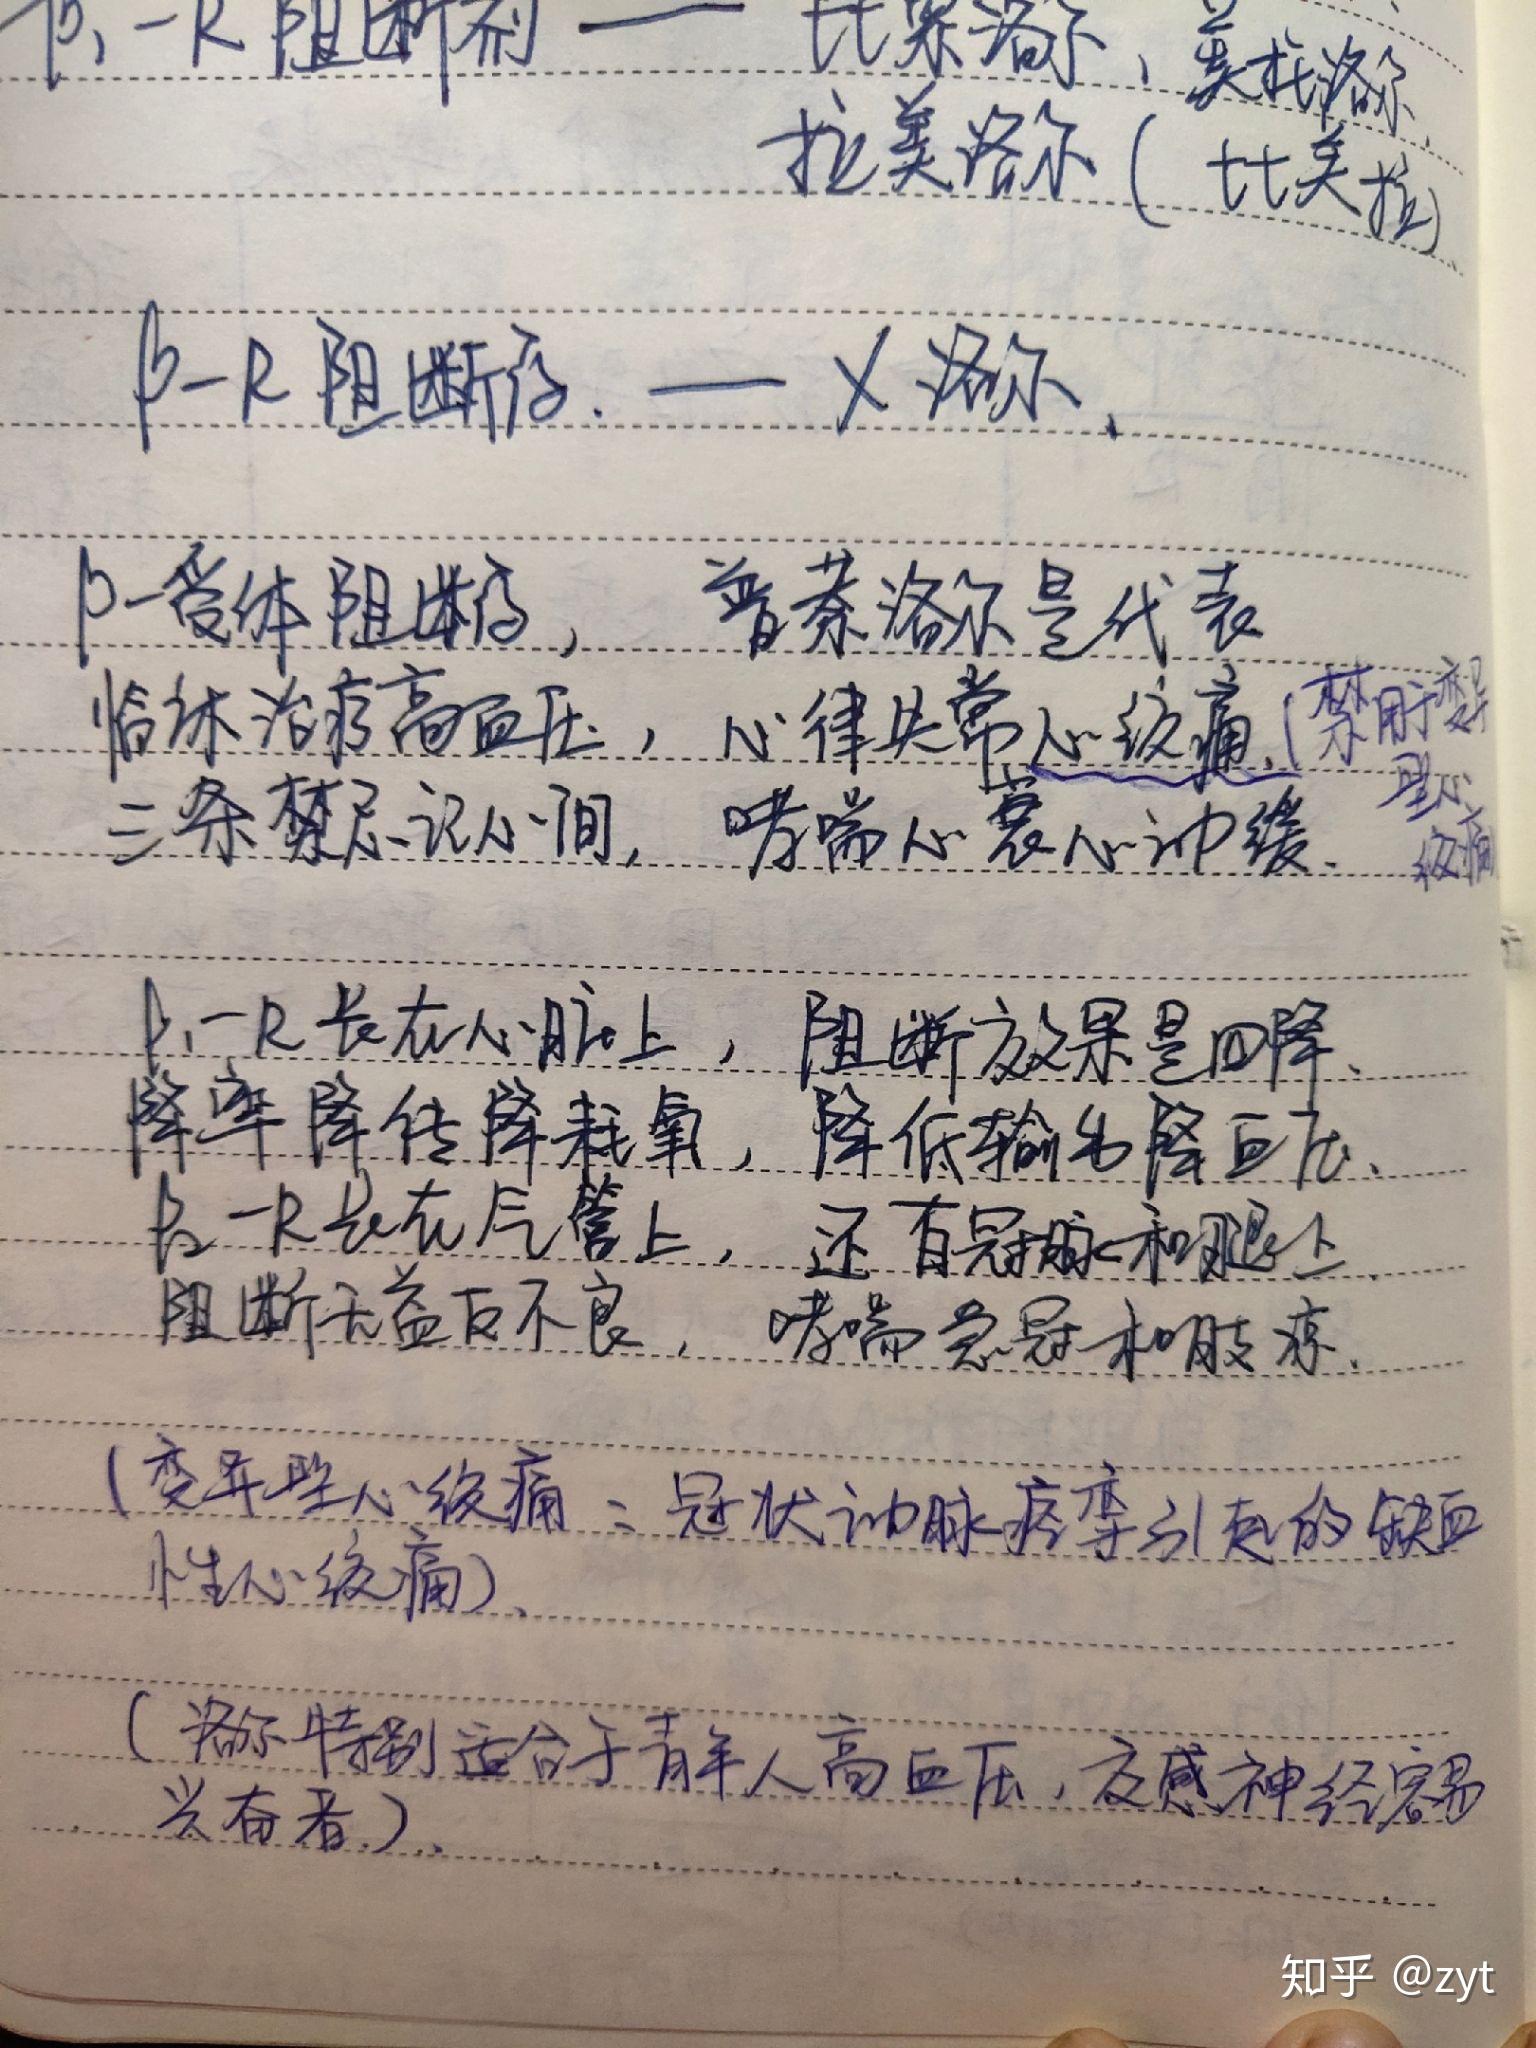 β₁-R 阻断剂 —— 比索洛尔、美托洛尔、
拉美洛尔(比美拉)
β-R 阻断药. —— X洛尔、
β-受体阻断药, 普萘洛尔是代表
临床治疗高血压, 心律失常心绞痛.(禁用于变异
型心
绞痛
三条禁忌记心间, 哮喘心衰心动缓.
β₁-R长在心脏上, 阻断效果是四降、
降率降传降耗氧, 降低输出降血压、
β₂-R长在气管上, 还有冠脉和腿上、
阻断无益反不良, 哮喘急冠和肢凉、
(变异型心绞痛:冠状动脉痉挛引起的缺血
性心绞痛)、
(洛尔特别适合于青年人高血压,交感神经容易
兴奋者.)、
知乎 @zyt